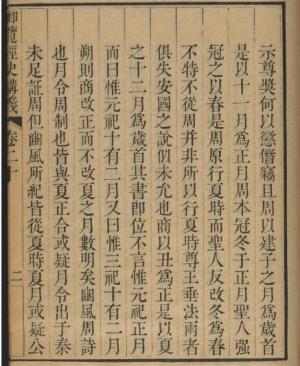 示尊獎何以懲僭竊且周以建子之月為歲首
是以十一月為正月周本冠冬于正月聖人强
冠之以春是周原行夏時而聖人反改冬為春
不特不從周并非所以行夏時尊王垂法兩者
俱失安國之說似未允也商以丑為正是以夏
之十二月為歲首其書即位不言惟元祀正月
而曰惟元祀十有二月又曰惟三祀十有二月
朔則商改正而不改夏之月數明矣豳風周詩
也月令周制也皆與夏正合或疑月令出于秦
未足証周但豳風所紀皆從夏時夏月或疑公
御覽經史講義 卷二十
二